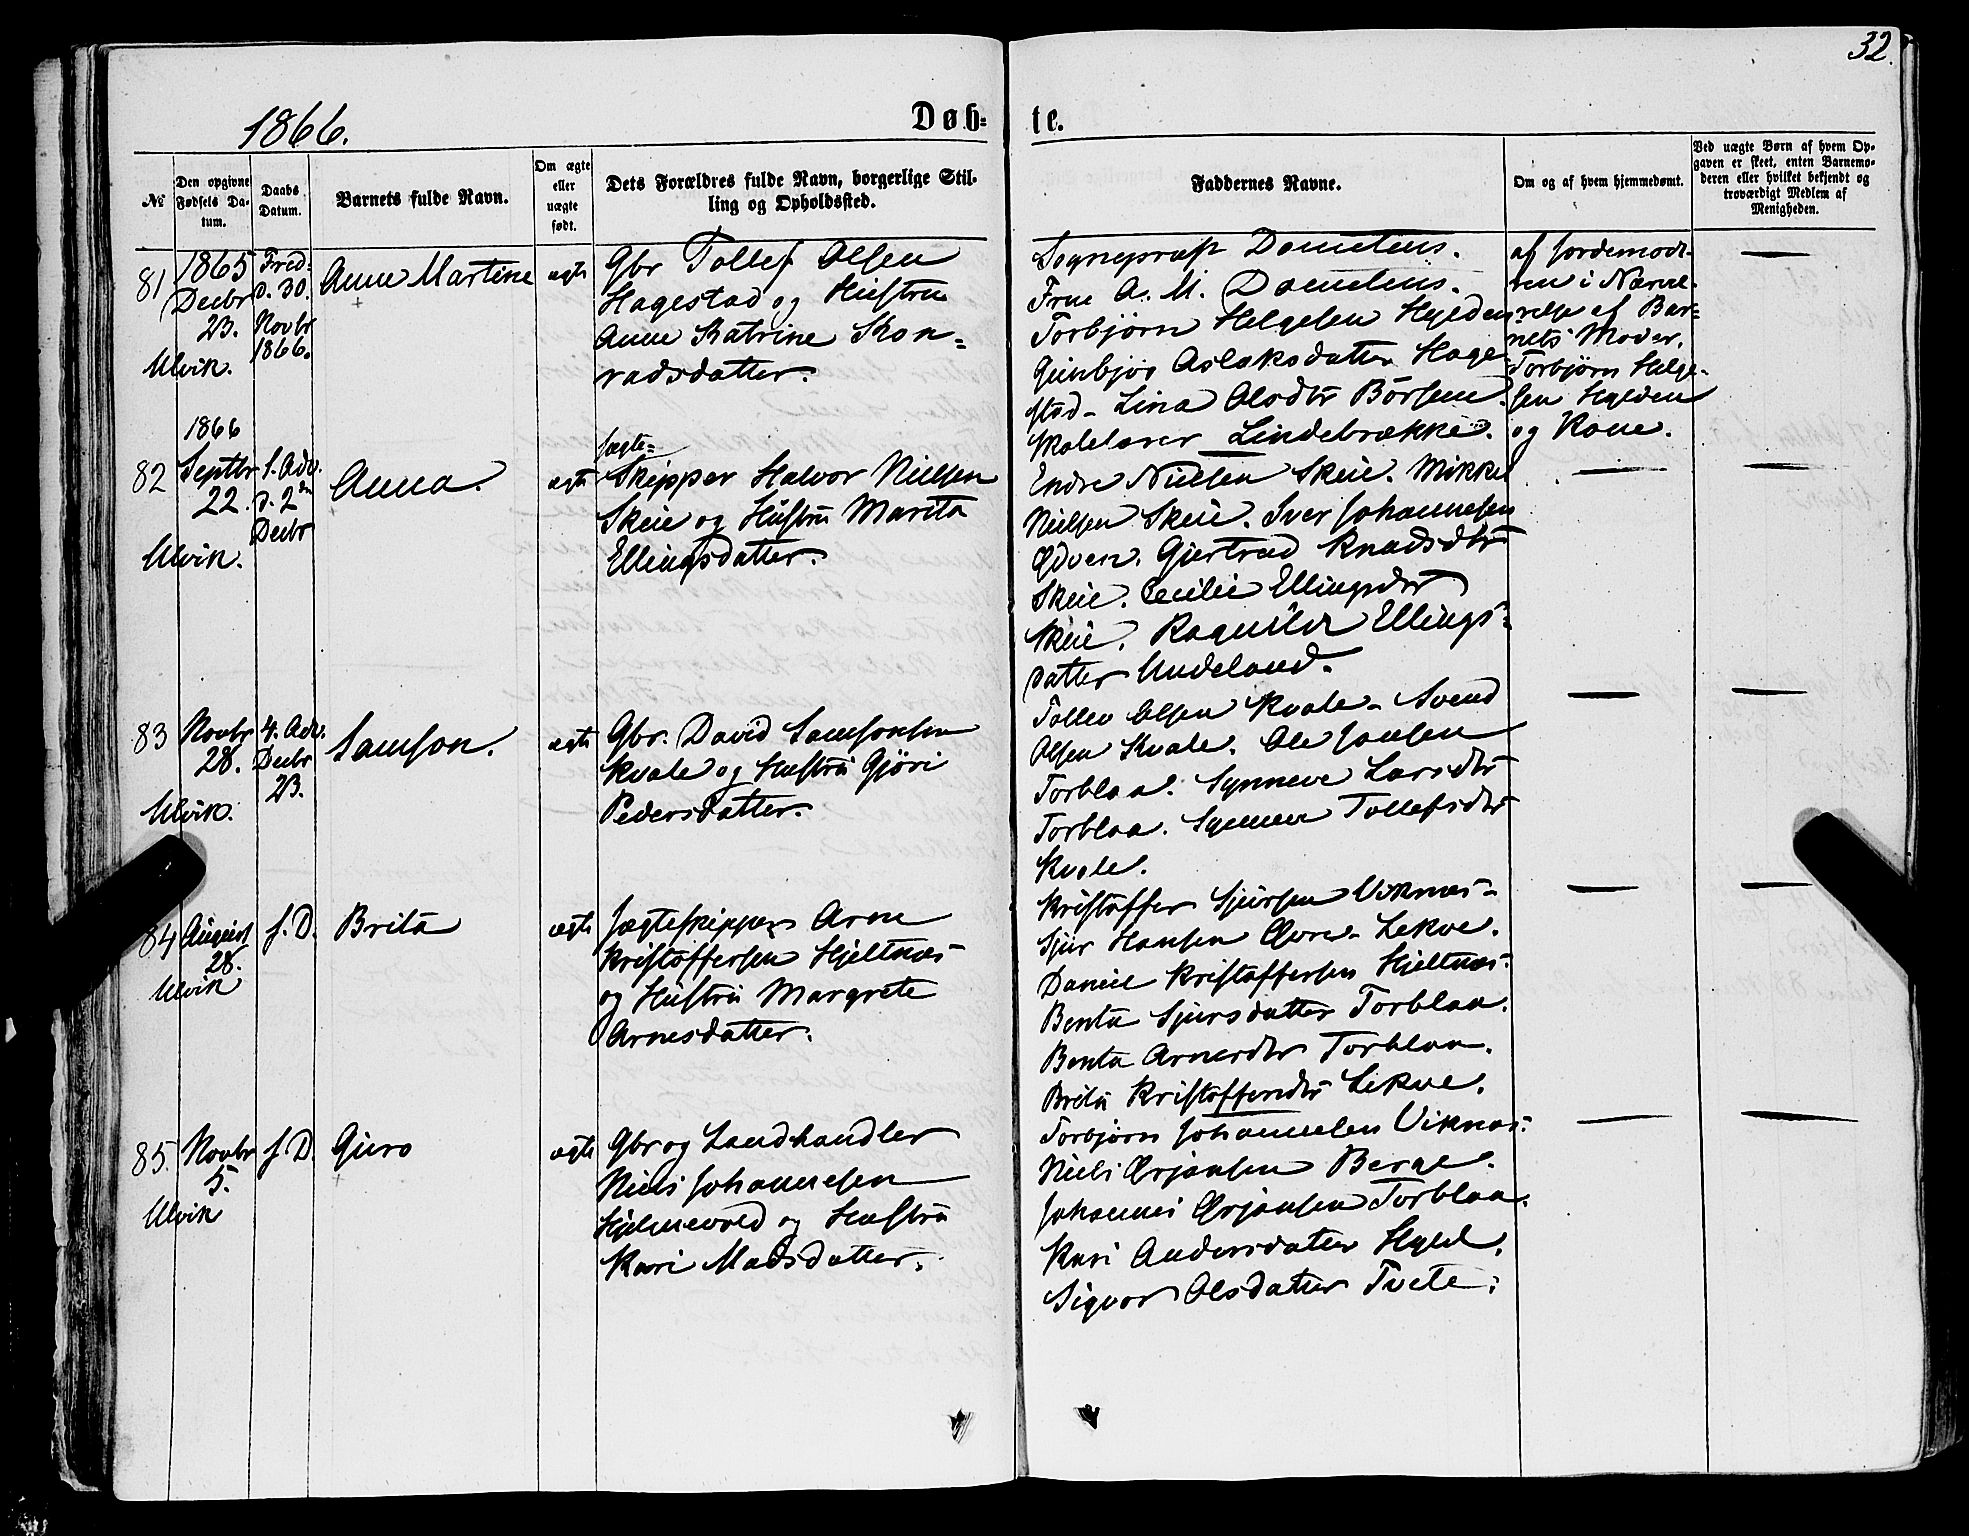 32.
1866.
Døb-
te.
№
Den opgivne
Fødsels Da-
tum.
Daabs
Datum.
Barnets fulde Navn.
Om ægte
eller
uægte
født.
Dets Forældres fulde Navn, borgerlige Stil-
ling og Opholdssted.
Faddernes Navne.
Om og af hvem hjemmedøbt.
Ved uægte Børn af hvem Op-
gaven er skeet, enten Barnemo-
deren eller hvilket bekjendt og
troværdigt Medlem af
Menigheden.
81
1865
Decbr
23.
Ulvik.
Fred-
d. 30.
Novbr
1866.
Anne Martine
ægte
Gbr Tollef Olsen
Hagestad og Hustru
Anne Katrine Kon-
radsdatter.
Sogneprest
Frue A. M.
Torbjørn Helgesen Hylden
Gunbjør Aslaksdatter Hage-
stad - Lina Olsdtr Børsem.
Skolelærer Lindebrække.
af Jordemode-
ren i Nærvæ-
relse af Bar-
nets Moder,
Torbjørn Helge-
sen Hylden
og Kone.
82
1866
Septbr
22.
Ulvik.
1. Adv.
d. 2den
Decbr
Anna.
ægte
Jægte-
Skipper Halvor Nielsen
Skeie og Hustru Marita
Ellingsdatter.
Endre Nielsen Skeie. Mikkel
Nielsen Skeie. Iver Johannesen
Ødven. Gjertrud Knudsdtr
Skeie. Cecilie Ellingsdtr
Skeie. Ragnilda Ellings-
datter Undeland.
83
Novbr
28.
Ulvik.
4. Adv.
Decbr
23.
Samson.
ægte
Gbr. David Samsonsen
Kvale og Hustru Gjøri
Pedersdatter.
Tollev Olsen Kvale - Svend
Olsen Kvale. Ole Jonsen
Torblaa. Synneve Larsdtr
Torblaa. Synneve Tollefsdtr
Kvale.
84
August
28.
Ulvik
s. D.
Brita
ægte
Jægteskipper Arne
Kristoffersen Hjeltnæs
og Hustru Margrete
Arnesdatter.
Kristoffer Sjursen Viknæs -
Sjur Hansen Øvre-Lekve.
Daniel Kristoffersen Hjeltnæs.
Benta Sjursdatter Torblaa.
Benta Arnesdtr Torblaa.
Brita Kristoffersdtr Lekve.
85.
Novbr
5.
Ulvik
s. D.
Guro
ægte
Gbr og Landhandler
Niels Johannesen
Hjelmevold og Hustru
Kari Madsdatter.
Torbjørn Johannesen Viknæs.
Niels Ørjansen Berge.
Johannes Ørjansen Torblaa.
Kari Andersdatter Hyld.
Sigvor Olsdatter Tveite.